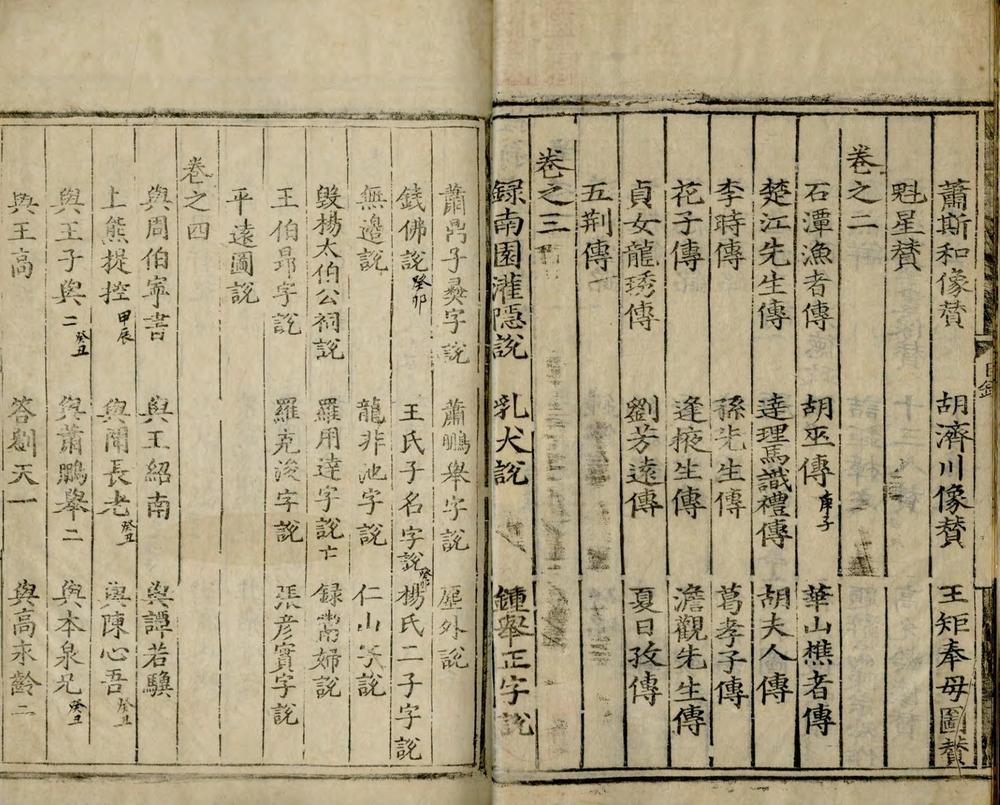 蕭斯和像贊 胡濟川像贊 王矩奉母圖贊
魁星贊
卷之二
石潭漁者傳 胡巫傳庚子 華山樵者傳
楚江先生傳 達理馬識禮傳 胡夫人傳
李時傳 孫先生傳 葛孝子傳
花子傳 逢掖生傳 澹觀先生傳
貞女龍琇傳 劉芳遠傳 夏日孜傳
五荆傳
卷之三
録南園灌隠說 乳犬說 鍾舉正字說
蕭鼎子彝字說 蕭鵬舉字說 塵外說
錢佛說癸卯 王氏子名字說癸卯 楊氏二子字說
無邊說 龍非池字說 仁山說
毀楊太伯公祠說 羅用達字說亡 録寗婦說
王伯昂字說 羅克浚字說 張彦實字說
平遠圖說
卷之四
與周伯寧書 與王紹南 與譚若驥
上熊提控甲辰 與聞長老癸丑 與陳心吾癸丑
與王子與二癸丑 與蕭鵬舉二 與本泉兄癸丑
與王高 答劉天一 與高求齡二